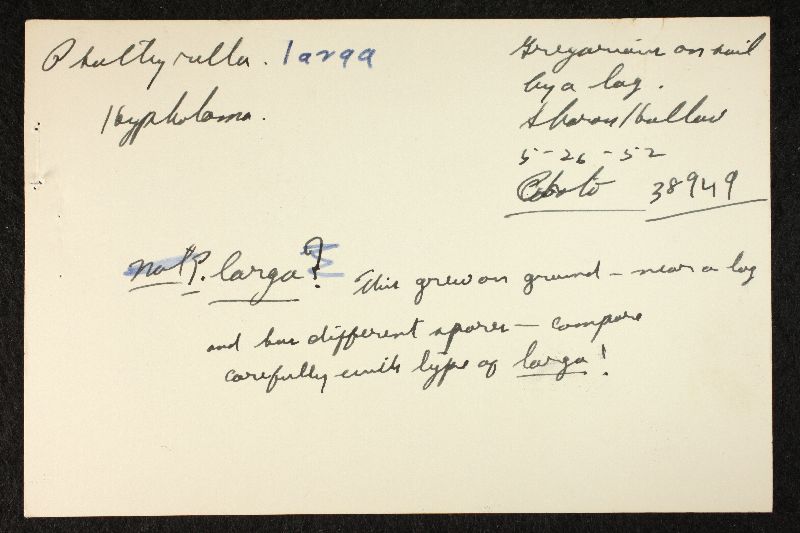 Psathyrella. larga
Hypholoma.
Gregarious on soil
by a log.
Sharon Hollow
5-26-52
Photo 38949
not P. larga?
This grew on ground – near a log
and has different spores – compare
carefully with type of larga!